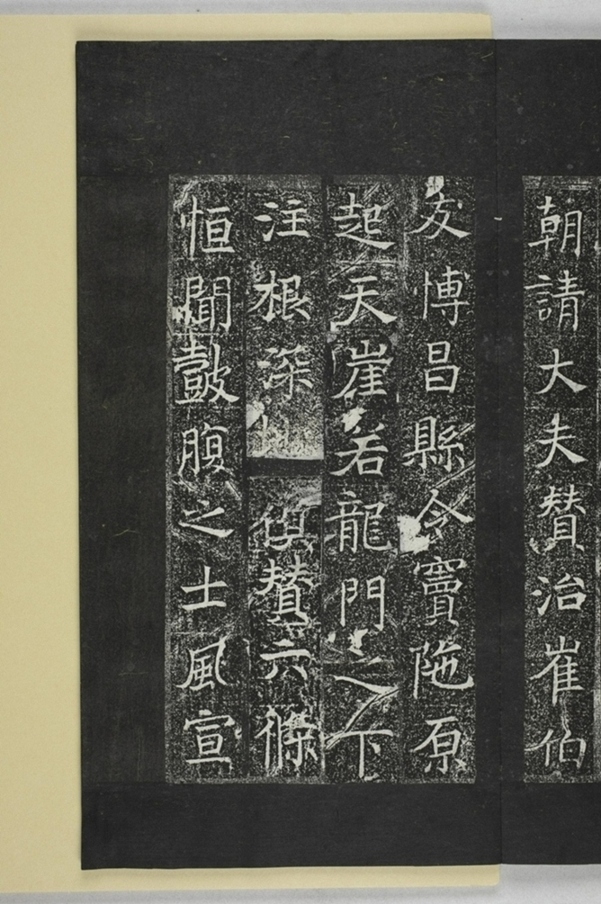 朝請大夫贊治崔伯
友博昌縣令竇陁原
起天崖若龍門之下
注根深 贊六條
恒聞鼓腹之士風宣